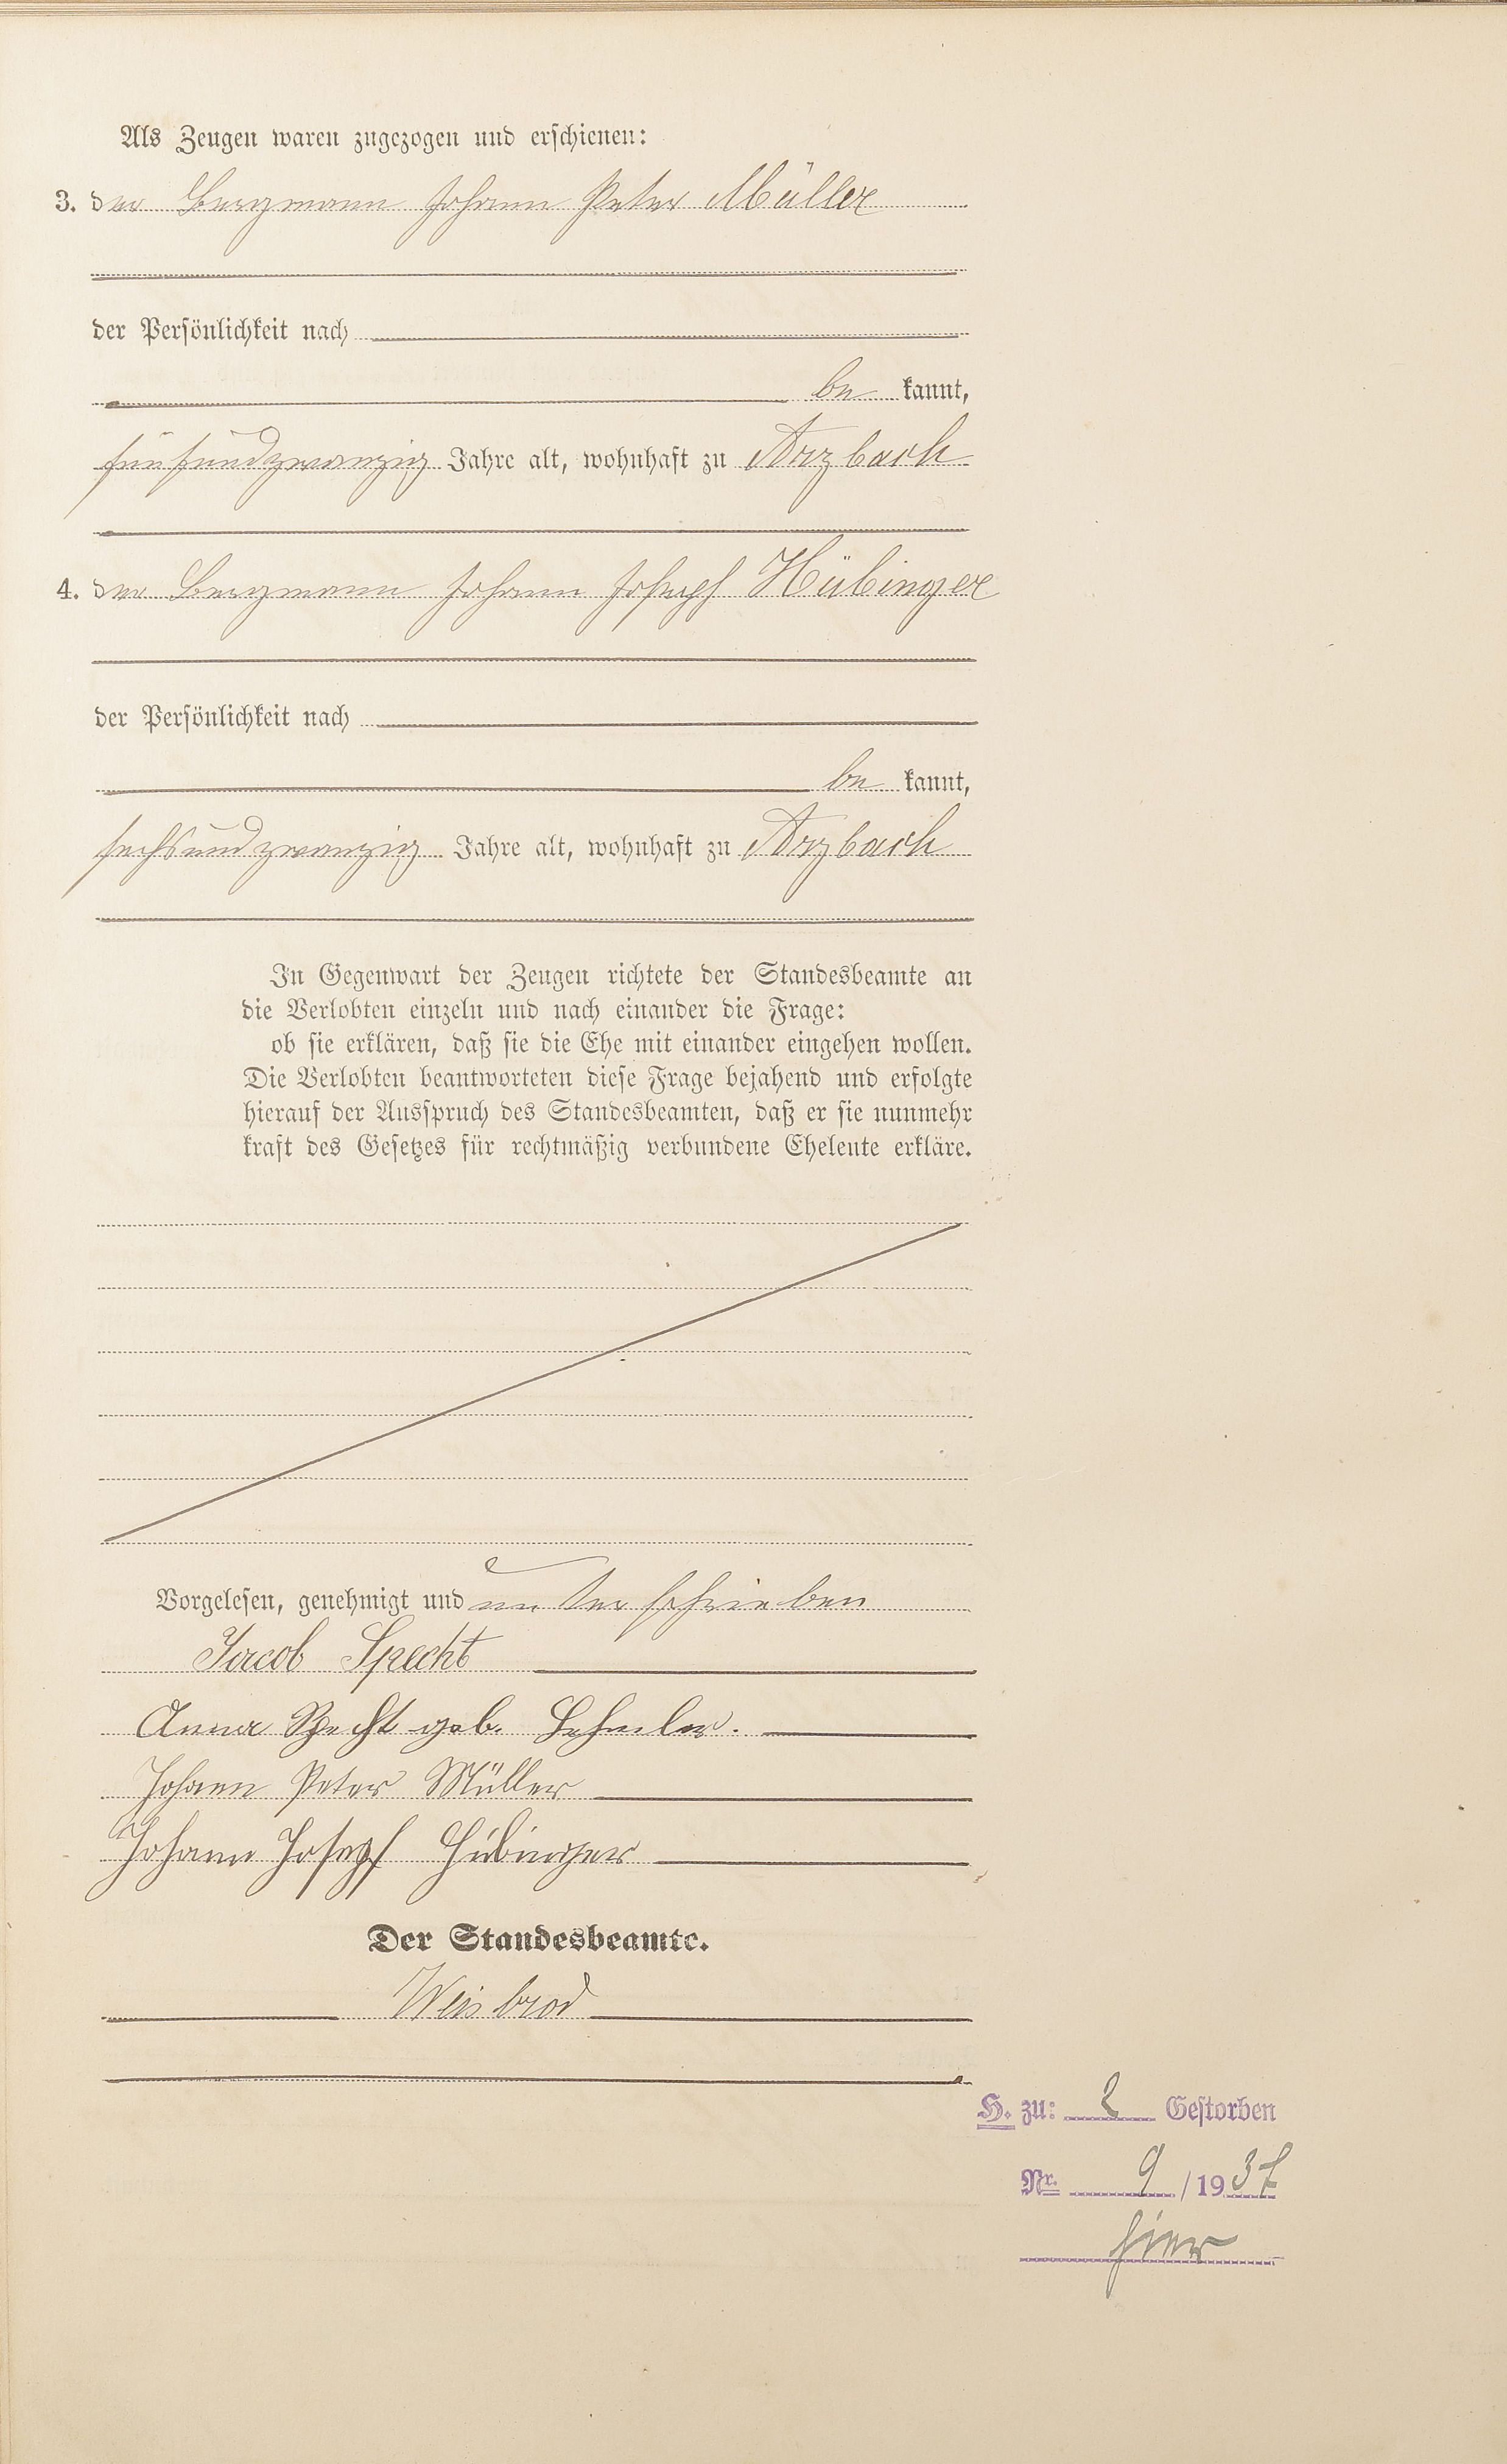 Als Zeugen waren zugezogen und erschienen:
3. der Bergmann Johann Peter Müller
der Persönlichkeit nach
be kannt,
fünfundzwanzig Jahre alt, wohnhaft zu Arzbach
4. der Bergmann Johann Joseph Hübinger
der Persönlichkeit nach
be kannt,
sechsundzwanzig Jahre alt, wohnhaft zu Arzbach
In Gegenwart der Zeugen richtete der Standesbeamte an
die Verlobten einzeln und nach einander die Frage:
ob sie erklären, daß sie die Ehe mit einander eingehen wollen.
Die Verlobten beantworteten diese Frage bejahend und erfolgte
hierauf der Ausspruch des Standesbeamten, daß er sie nunmehr
kraft des Gesetzes für rechtmäßig verbundene Eheleute erkläre.
Vorgelesen, genehmigt und unterschrieben
Jacob Specht
Anna Specht geb.
Johann Peter Müller
Johann Josepf Hübinger
Der Standesbeamte.
Weisbrod
H. zu: 2 Gestorben
Nr. 9 / 1937
hier